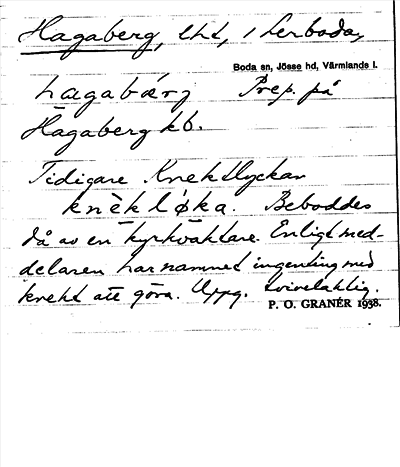 Hagaberg, lht, i Lerboda,
Boda sn, Jösse hd, Värmlands l.
hagabærj Prep. på
Hagaberg kb.
Tidigare Knektlyckan
knèkløka. Beboddes
då av en kyrkvaktare. Enligt med-
delaren har namnet ingenting med
knekt att göra. Uppg. tvivelaktig.
P. O. GRANÉR 1938.